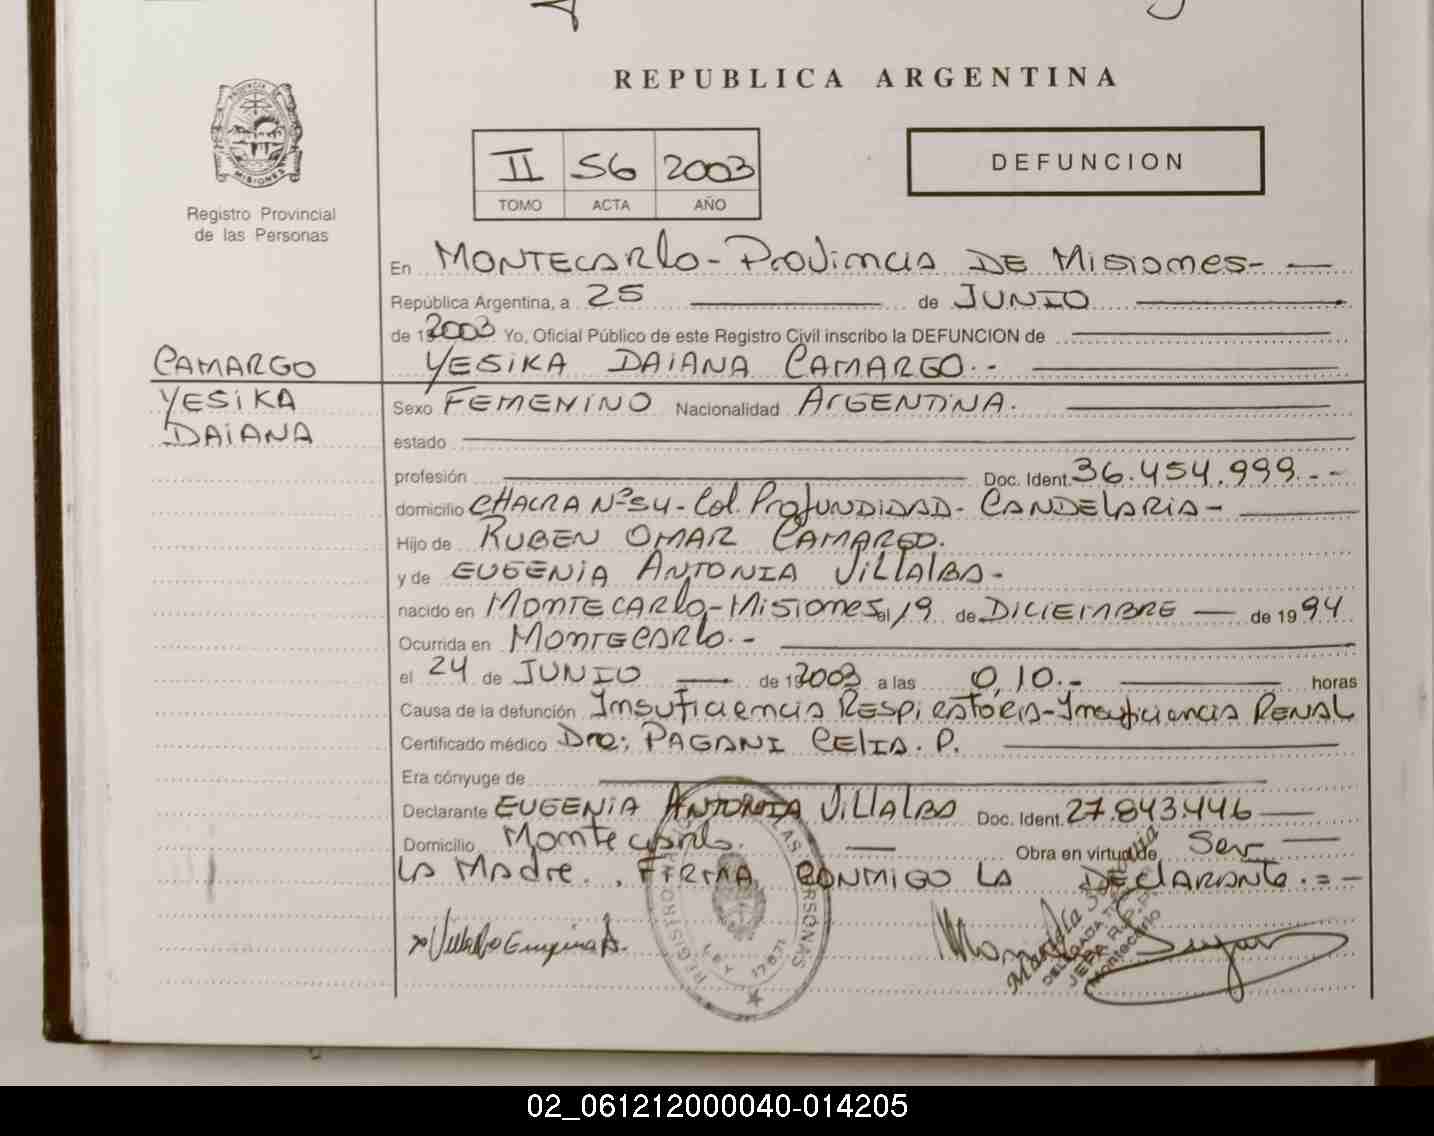 REPUBLICA ARGENTINA
PROVINCIA DE
MISIONES
Registro Provincial
de las Personas
II 56 2003
TOMO ACTA AÑO
DEFUNCION
En MONTECARLO - PROVINCIA DE MISIONES -
República Argentina, a 25 de JUNIO
de 2003 Yo, Oficial Público de este Registro Civil inscribo la DEFUNCION de
CAMARGO
YESIKA DAIANA CAMARGO.-
YESIKA
DAIANA
Sexo FEMENINO Nacionalidad ARGENTINA.
estado
profesión Doc. Ident. 36.454.999.--
domicilio CHACRA Nº 54 - Col. PROFUNDIDAD - CANDELARIA -
Hijo de RUBEN OMAR CAMARGO.
y de EUGENIA ANTONIA VILLALBA -
nacido en MONTECARLO - MISIONES el 19 de DICIEMBRE de 1994
Ocurrida en MONTECARLO.-
el 24 de JUNIO de 2003 a las 0,10.- horas
Causa de la defunción INSUFICIENCIA RESPIRATORIA - INSUFICIENCIA RENAL
Certificado médico Dra: PAGANI CELIA. P.
Era cónyuge de
Declarante EUGENIA ANTONIA VILLALBA Doc. Ident. 27.843.446
Domicilio Montecarlo. Obra en virtud de Ser
LA MADRE. . FIRMA CONMIGO LA DECLARANTE. = -
x Villalba Eugenia A.
REGISTRO LAS PERSONAS
LEY 17.671
Mariela
DELEGADA
JEFA R.P.P.
Montecarlo
02_061212000040-014205